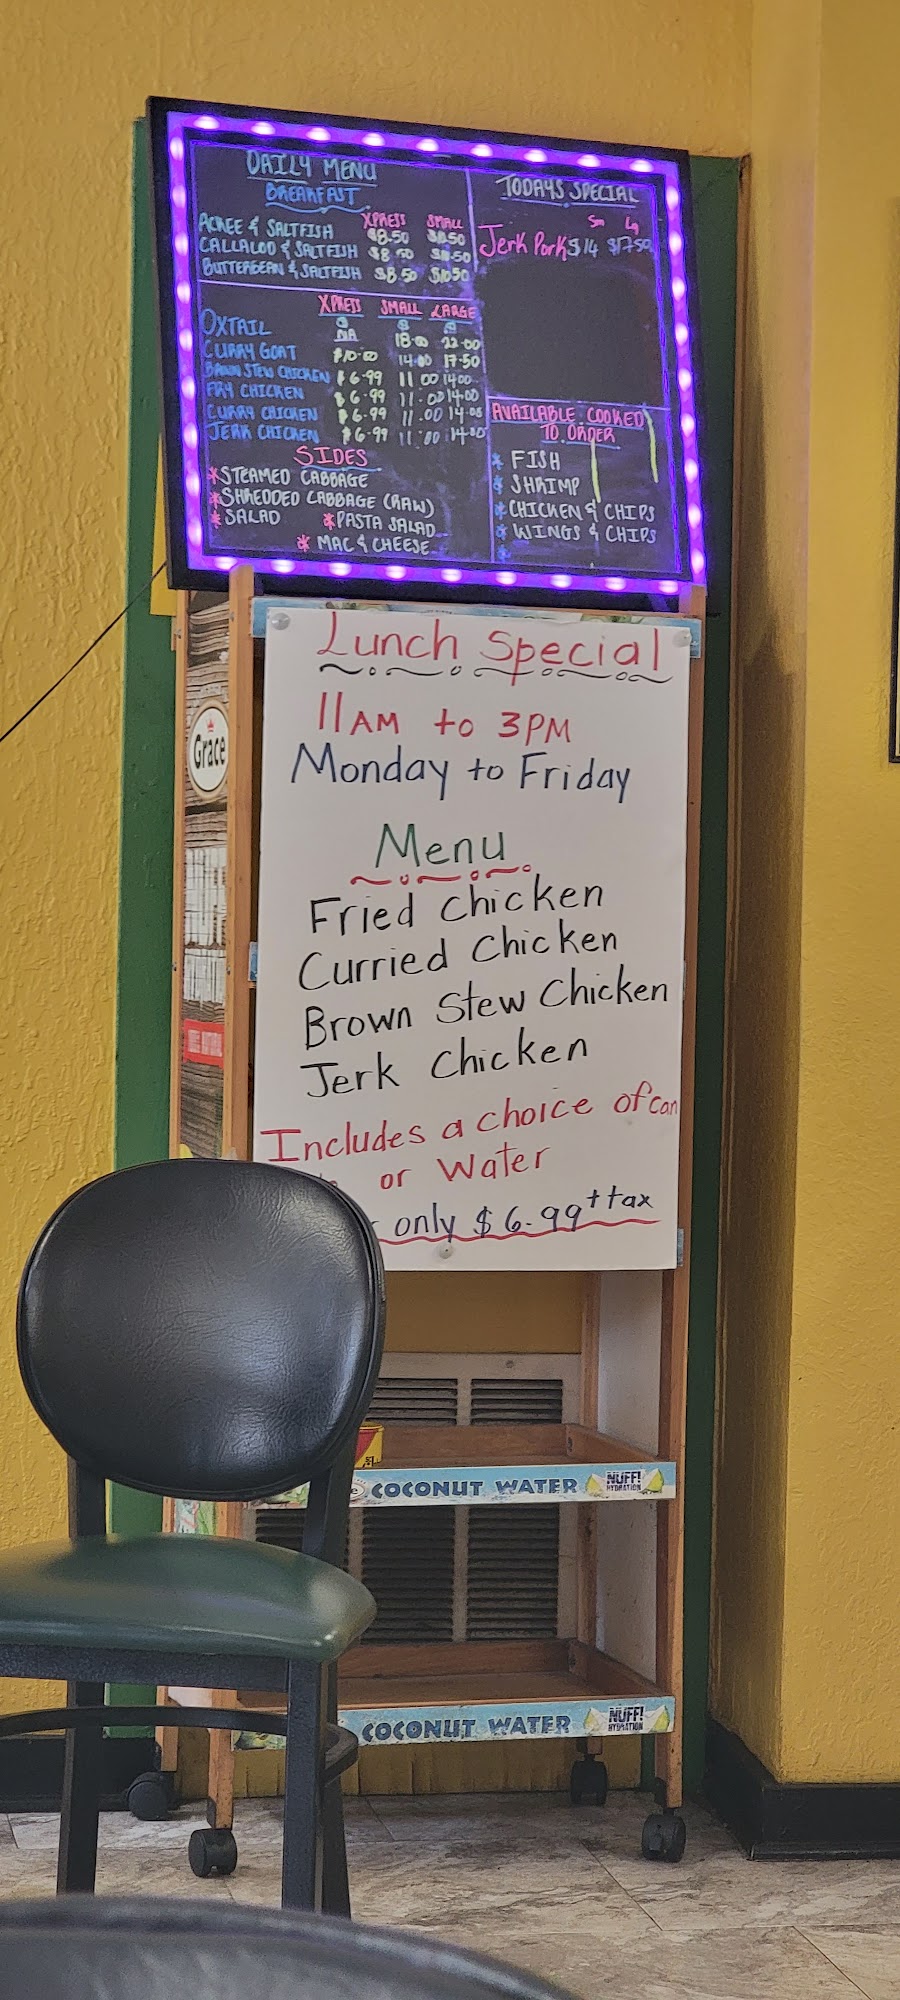 DAILY MENU
BREAKFAST
XPRESS SMALL
ACKEE & SALTFISH $8.50 $10.50
CALLALOO & SALTFISH $8.50 $10.50
BUTTERBEAN & SALTFISH $8.50 $10.50
XPRESS SMALL LARGE
OXTAIL NA 18.00 22.00
CURRY GOAT $10.00 14.00 17.50
BROWN STEW CHICKEN $6.99 11.00 14.00
FRY CHICKEN $6.99 11.00 14.00
CURRY CHICKEN $6.99 11.00 14.00
JERK CHICKEN $6.99 11.00 14.00
SIDES
* STEAMED CABBAGE
* SHREDDED CABBAGE (RAW)
* SALAD * PASTA SALAD
* MAC & CHEESE
TODAYS SPECIAL
Sm Lg
Jerk Pork $14 $17.50
AVAILABLE COOKED
TO ORDER
* FISH
* SHRIMP
* CHICKEN & CHIPS
* WINGS & CHIPS
*
Lunch Special
11AM to 3PM
Monday to Friday
Menu
Fried Chicken
Curried Chicken
Brown Stew Chicken
Jerk Chicken
Includes a choice of can
or Water
only $6.99 + tax
Grace
COCONUT WATER NUFF! HYDRATION
COCONUT WATER NUFF! HYDRATION